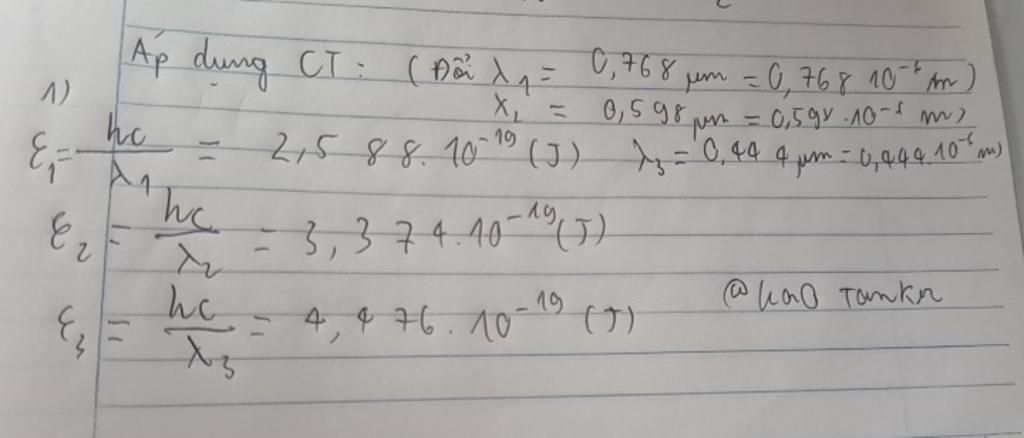 Áp dụng CT: (Đổi λ₁ = 0,768 μm = 0,768.10⁻⁶ m)
1)
λ₂ = 0,598 μm = 0,598.10⁻⁶ m)
ε₁ = hc/λ₁ = 2,588.10⁻¹⁹ (J) λ₃ = 0,444 μm = 0,444.10⁻⁶ m)
ε₂ = hc/λ₂ = 3,374.10⁻¹⁹ (J)
ε₃ = hc/λ₃ = 4,476.10⁻¹⁹ (J)